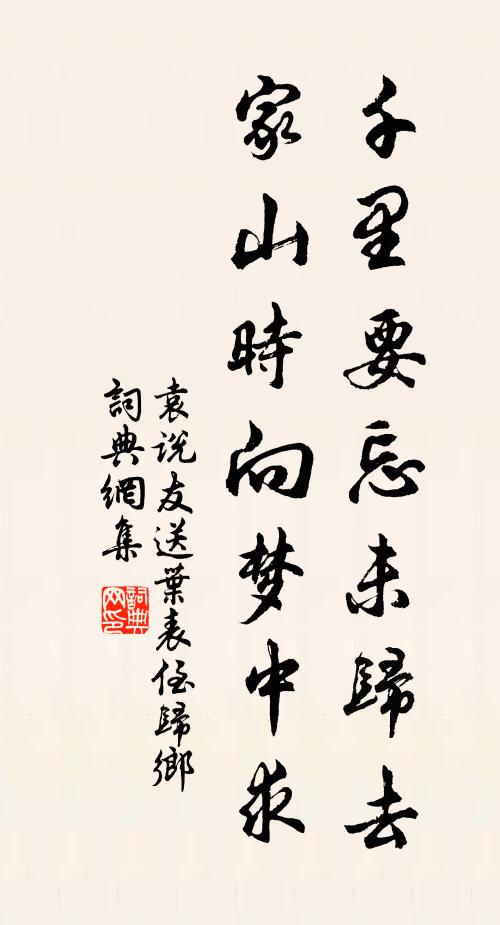 千里要忘未歸去
家山時向梦中求
袁说友送葉表侄歸鄉
詞典網集
詞典网印